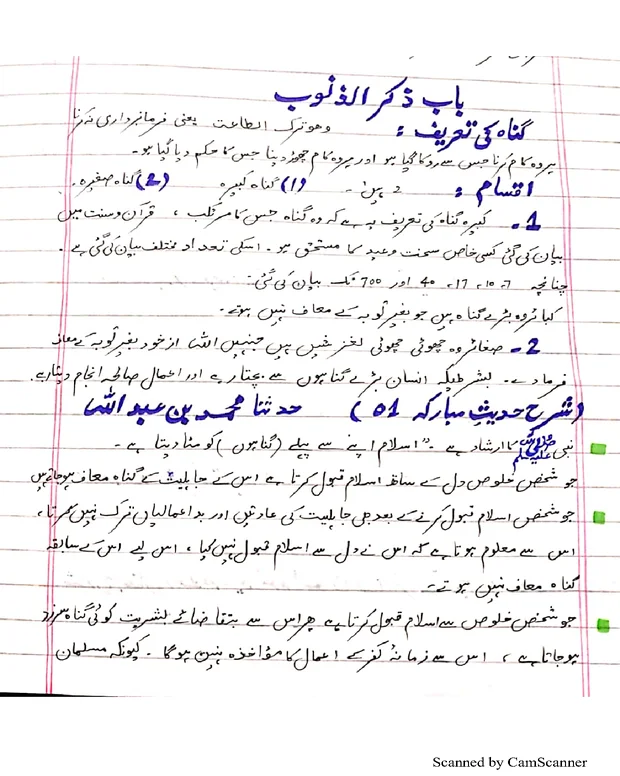 باب ذکر الذنوب
گناہ کی تعریف : وھو ترک الطاعت یعنی فرمانبرداری نہ کرنا
ہر وہ کام کرنا جس سے روکا گیا ہو اور ہر وہ کام چھوڑ دینا جس کا حکم دیا گیا ہو۔
اقسام : 2 ہیں۔ (1) گناہ کبیرہ (2) گناہ صغیرہ
1- کبیرہ گناہ کی تعریف یہ ہے کہ وہ گناہ جس کا مرتکب ، قرآن و سنت میں
بیان کی گئی کسی خاص سخت وعید کا مستحق ہو ۔ اسکی تعداد مختلف بیان کی گئی ہے ۔
چنانچہ 7، 10، 17، 40 اور 700 تک بیان کی گئی۔
کبائر وہ بڑے گناہ ہیں جو بغیر توبہ کے معاف نہیں ہوتے۔
2- صغائر وہ چھوٹی چھوٹی لغزشیں ہیں جنہیں اللہ از خود بغیر توبہ کے معاف
فرما دے ۔ بشرطیکہ انسان بڑے گناہوں سے بچتا رہے اور اعمال صالحہ انجام دیتا رہے۔
(شرح حدیث مبارکہ 01) حدثنا محمد بن عبد اللہ
نبی صلی اللہ علیہ وسلم کا ارشاد ہے ۔ "اسلام اپنے سے پہلے (گناہوں) کو مٹا دیتا ہے ۔
جو شخص خلوص دل کے ساتھ اسلام قبول کرتا ہے اس کے جاہلیت کے گناہ معاف ہوجاتے ہیں
جو شخص اسلام قبول کرنے کے بعد بھی جاہلیت کی عادتیں اور بداعمالیاں ترک نہیں کرتا،
اس سے معلوم ہوتا ہے کہ اس نے دل سے اسلام قبول نہیں کیا ، اس لیے اس کے سابقہ
گناہ معاف نہیں ہوتے۔
جو شخص خلوص سے اسلام قبول کرتا ہے پھر اس سے بتقاضائے بشریت کوئی گناہ سرزد
ہوجاتا ہے ، اس سے زمانۂ کفر کے اعمال کا مؤاخذہ نہیں ہوگا ۔ کیونکہ مسلمان
Scanned by CamScanner